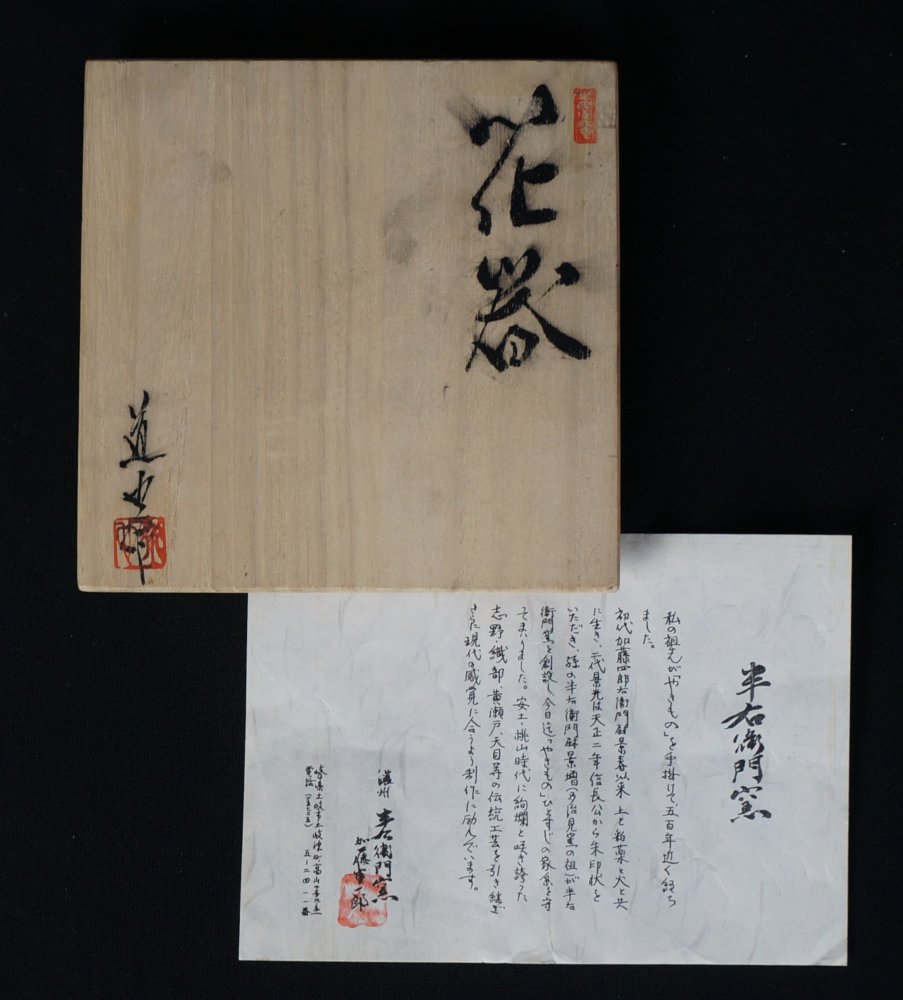 花器
道年作
半右衛門窯
私の祖先が「やきもの」を手掛けて五百年近く経ち
ました。
初代加藤四郎右衛門尉景春以来、土と釉薬と火と共
に生き、二代景光は天正二年信長公から朱印状を
いただき、孫の半右衛門尉景増(多治見窯の祖)が半右
衛門窯を創設し、今日迄「やきもの」ひとすじの家系を守
ってまいりました。安土・桃山時代に絢爛と咲き誇った
志野・織部、黄瀬戸、天目等の伝統工芸を引き継ぎ
さらに現代の感覚に合うよう制作に励んでいます。
濃州 半右衛門窯
加藤
岐阜県土岐市土岐津町高山
電話
五-二四一一番